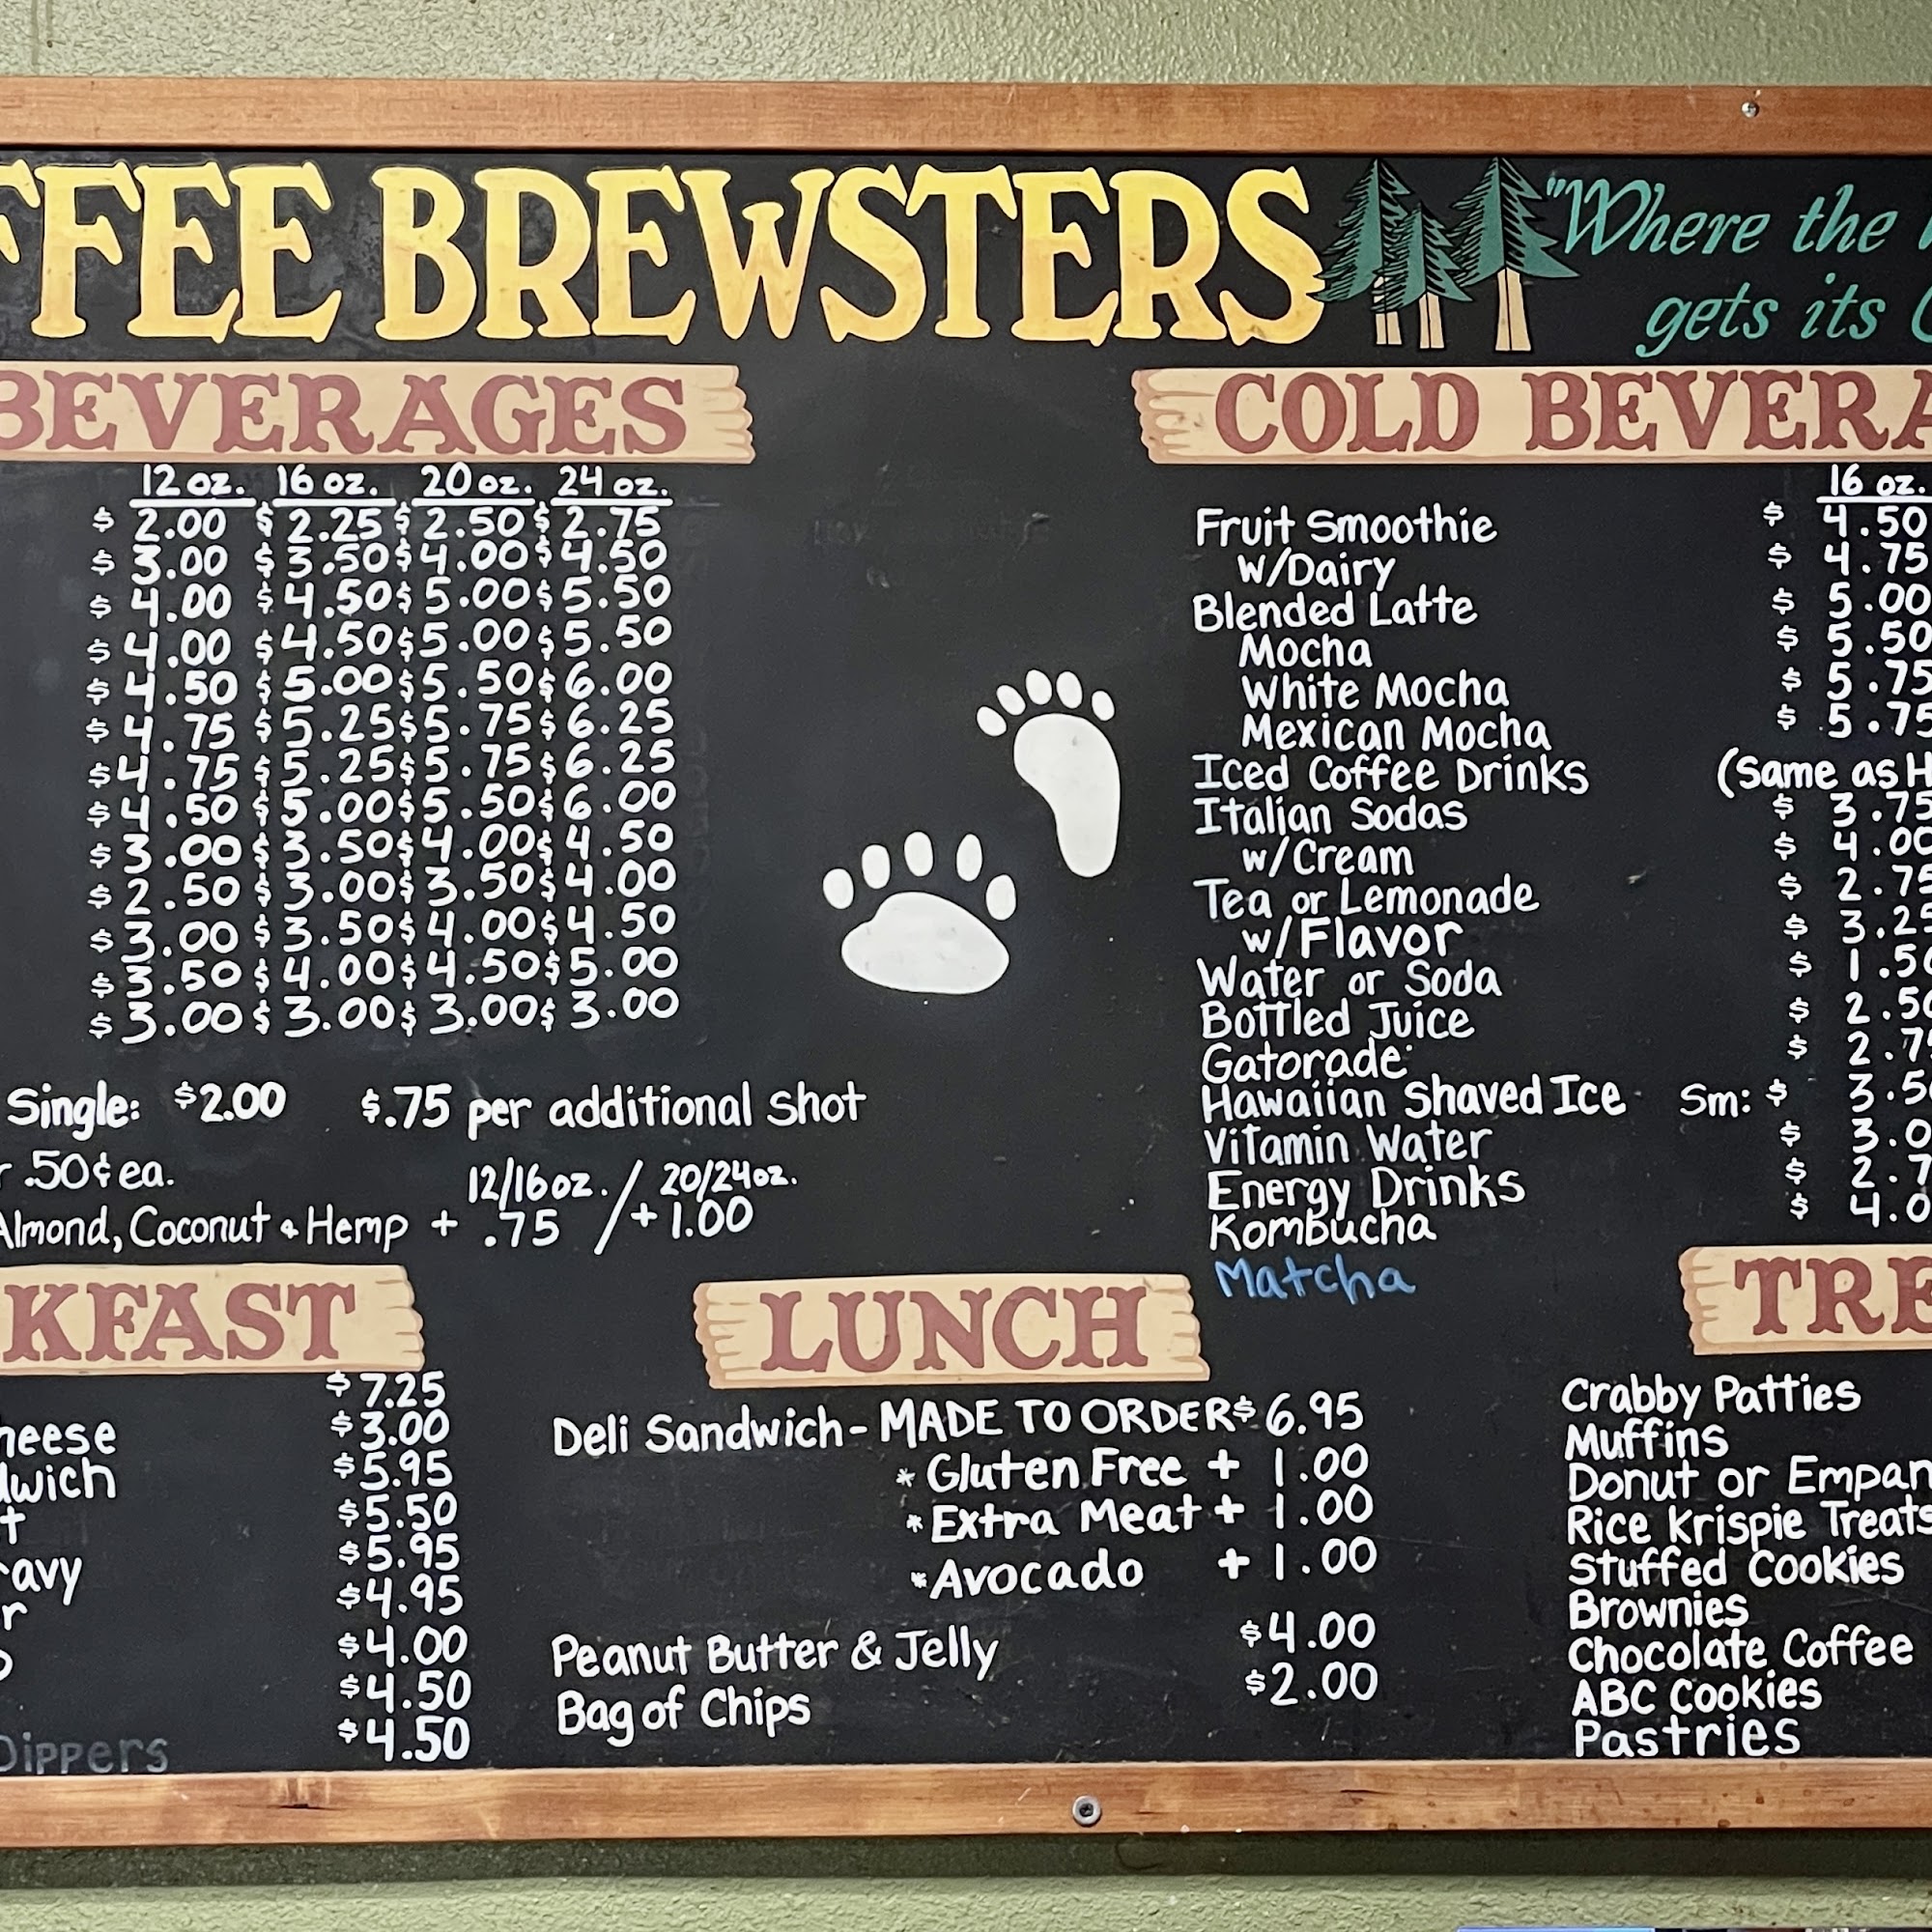 FFEE BREWSTERS
"Where the
gets its
BEVERAGES
12 oz. 16 oz. 20 oz. 24 oz.
$ 2.00 $ 2.25 $ 2.50 $ 2.75
$ 3.00 $ 3.50 $ 4.00 $ 4.50
$ 4.00 $ 4.50 $ 5.00 $ 5.50
$ 4.00 $ 4.50 $ 5.00 $ 5.50
$ 4.50 $ 5.00 $ 5.50 $ 6.00
$ 4.75 $ 5.25 $ 5.75 $ 6.25
$ 4.75 $ 5.25 $ 5.75 $ 6.25
$ 4.50 $ 5.00 $ 5.50 $ 6.00
$ 3.00 $ 3.50 $ 4.00 $ 4.50
$ 2.50 $ 3.00 $ 3.50 $ 4.00
$ 3.00 $ 3.50 $ 4.00 $ 4.50
$ 3.50 $ 4.00 $ 4.50 $ 5.00
$ 3.00 $ 3.00 $ 3.00 $ 3.00
Single: $2.00 $.75 per additional shot
.50¢ ea.
12/16oz. / 20/24oz.
Almond, Coconut & Hemp + .75 / + 1.00
COLD BEVERA
16 oz.
Fruit Smoothie $ 4.50
w/Dairy $ 4.75
Blended Latte $ 5.00
Mocha $ 5.50
White Mocha $ 5.75
Mexican Mocha $ 5.75
Iced Coffee Drinks (Same as H
Italian Sodas $ 3.75
w/Cream $ 4.00
Tea or Lemonade $ 2.75
w/Flavor $ 3.25
Water or Soda $ 1.50
Bottled Juice $ 2.50
Gatorade $ 2.75
Hawaiian Shaved Ice Sm: $ 3.5
Vitamin Water $ 3.0
Energy Drinks $ 2.7
Kombucha $ 4.0
Matcha
KFAST
$7.25
heese $3.00
dwich $5.95
t $5.50
ravy $5.95
r $4.95
$4.00
$4.50
Dippers $4.50
LUNCH
Deli Sandwich - MADE TO ORDER $6.95
* Gluten Free + 1.00
* Extra Meat + 1.00
* Avocado + 1.00
Peanut Butter & Jelly $4.00
Bag of Chips $2.00
TRE
Crabby Patties
Muffins
Donut or Empan
Rice Krispie Treats
Stuffed Cookies
Brownies
Chocolate Coffee
ABC Cookies
Pastries